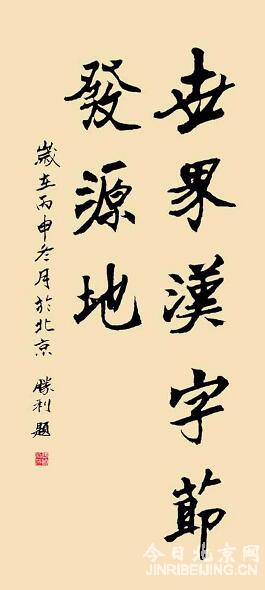 世界漢字節
發源地
歲在丙申冬月於北京 勝利題
今日北京网
JINRIBEIJING.CN